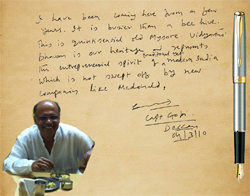 I have been coming here from a few
years. It is busier than a bee hive.
This is quinksensid old Mysore Vidyarthi
bhavan is our heritage and represents
the entreprenunial spirit of a modern India
which is not swept off by new
companies like Mcdonald,
Capt Gopi
Deccan
/3/10